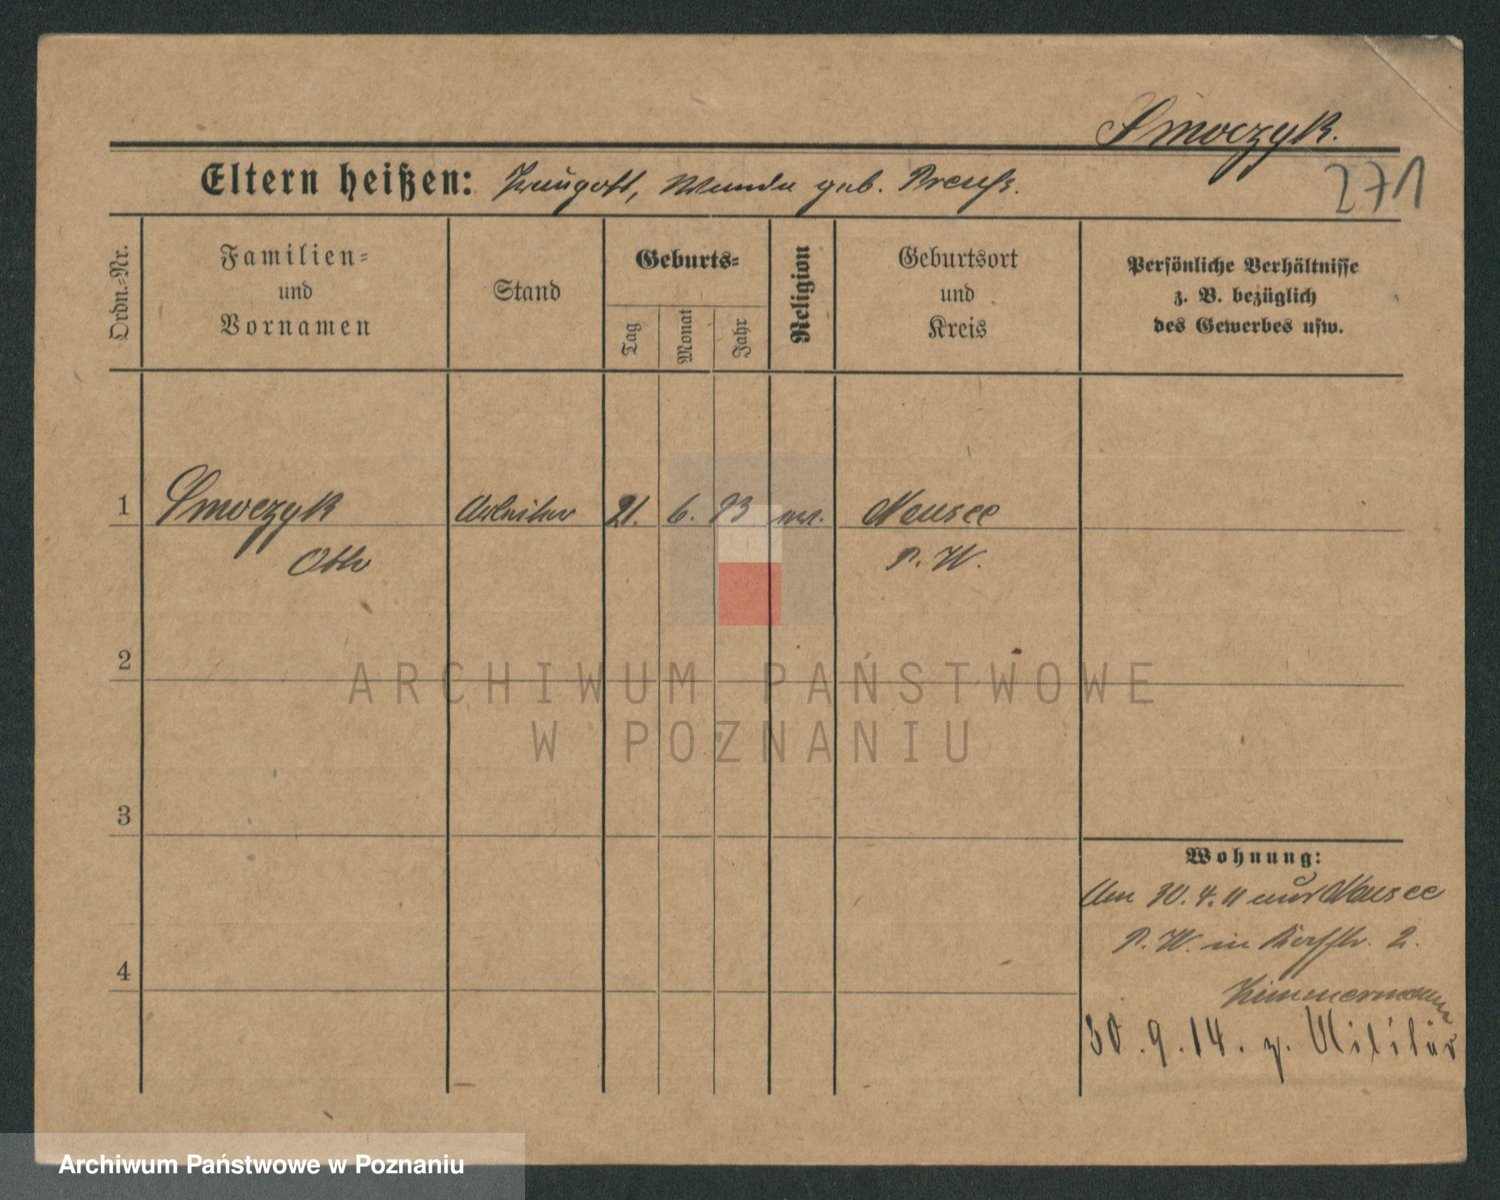 Smoczyk.
271
Eltern heißen: Traugott, Wanda geb. Preuß.
Ordn.-Nr.
Familien- und Vornamen
Stand
Geburts-
Tag
Monat
Jahr
Religion
Geburtsort und Kreis
Persönliche Verhältnisse
z. B. bezüglich
des Gewerbes usw.
1 Smoczyk Arbeiter 21. 6. 93 Neusee
Otto P. W.
2
3
4
Wohnung:
Am 30. 4. 11 aus Neusee
P. W. in 2.
Zimmermann
30.9.14. z. Militär
ARCHIWUM PAŃSTWOWE
W POZNANIU
Archiwum Państwowe w Poznaniu